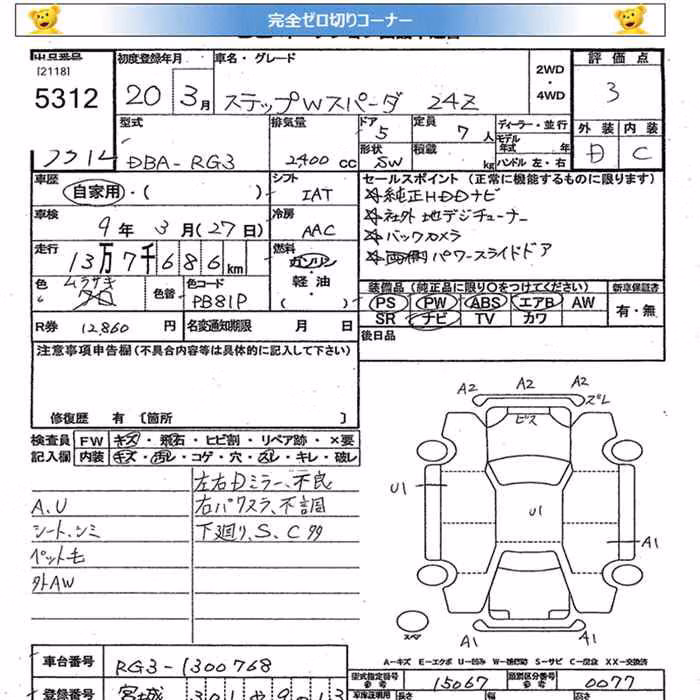 完全ゼロ切りコーナー
初度登録年月 車名・グレード 評価点
[2118]
5312 20 3月 ステップWスパーダ 24Z 2WD・4WD 3
型式 排気量 ドア 5 定員 7人 ディーラー・並行 外装 内装
モデル年式 年
DBA-RG3 2400cc 形状 SW 積載 kg ハンドル 左・右 D C
車歴 シフト セールスポイント(正常に機能するものに限ります)
自家用・( ) IAT 純正HDDナビ
車検 冷房 社外 地デジチューナー
9年3月(27日) AAC バックカメラ
走行 燃料 両側パワースライドドア
13万7千686km ガソリン・軽油・( )
色 ムラサキ 色替 色コード PB81P
装備品(純正品に限り○をつけてください) 新車保証書
PS PW ABS エアB AW 有・無
SR ナビ TV カワ
R券 12,860円 名変通知期限 月 日 後日品
注意事項申告欄(不具合内容等は具体的に記入して下さい)
修復歴 有 [箇所 ]
検査員 FW キズ・飛石・ヒビ割・リペア跡・×要
記入欄 内装 キズ・汚レ・コゲ・穴・スレ・キレ・破レ
左右Dミラー、不良
A.U 右パワスラ、不調
シート、シミ 下廻り、S、C多
ペット毛
外AW
A2 A2 A2
ズレ
ビス
U1 U1
A1
スペア A1 A1
A-キズ E-エクボ U-凹み W-補修跡 S-サビ C-腐食 XX-交換済
車台番号 RG3-1300768
型式指定番号 参考 15067 類別区分番号 参考 0077
登録番号 宮城 301 や 9013
車庫証明用 長さ 幅 高さ